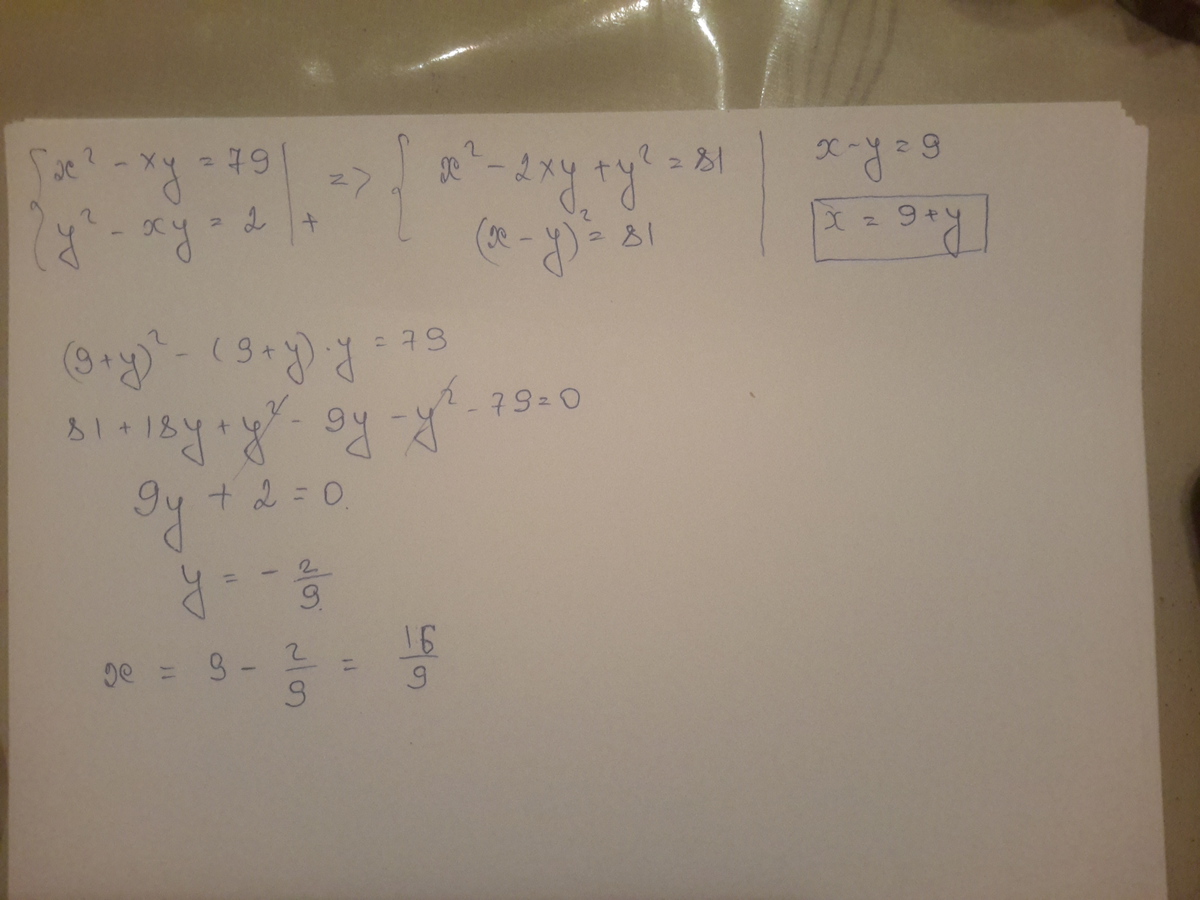 { x² - xy = 79 | => { x² - 2xy + y² = 81 | x - y = 9
{ y² - xy = 2 | + (x - y)² = 81 | x = 9 + y
(9+y)² - (9+y)·y = 79
81 + 18y + y² - 9y - y² - 79 = 0
9y + 2 = 0
y = - 2/9
x = 9 - 2/9 = 16/9